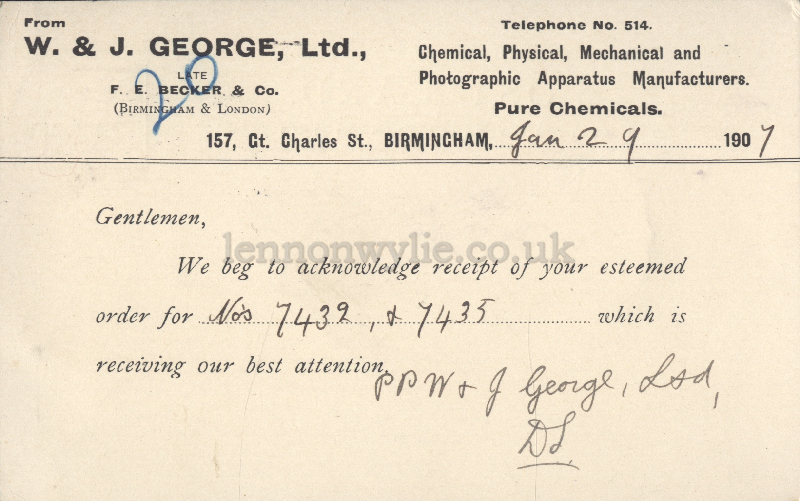 From
W. & J. GEORGE, Ltd.,
LATE
F. E. BECKER & Co.
(BIRMINGHAM & LONDON)
20
Telephone No. 514.
Chemical, Physical, Mechanical and
Photographic Apparatus Manufacturers.
Pure Chemicals.
157, Gt. Charles St., BIRMINGHAM, Jan 29 1907
Gentlemen,
lennonwylie.co.uk
We beg to acknowledge receipt of your esteemed
order for No's 7432, & 7435 which is
receiving our best attention.
PP W & J George, Ltd,